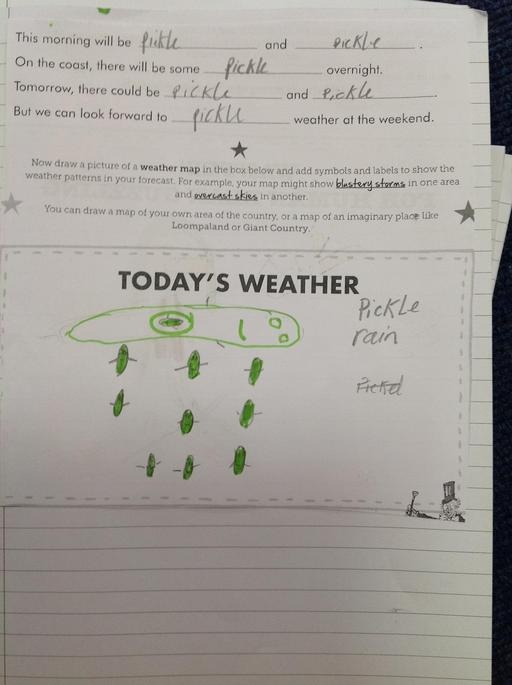 This morning will be pickle and pickle .
On the coast, there will be some pickle overnight.
Tomorrow, there could be pickle and pickle .
But we can look forward to pickle weather at the weekend.
Now draw a picture of a weather map in the box below and add symbols and labels to show the
weather patterns in your forecast. For example, your map might show blustery storms in one area
and overcast skies in another.
You can draw a map of your own area of the country, or a map of an imaginary place like
Loompaland or Giant Country.
TODAY'S WEATHER
Pickle
rain